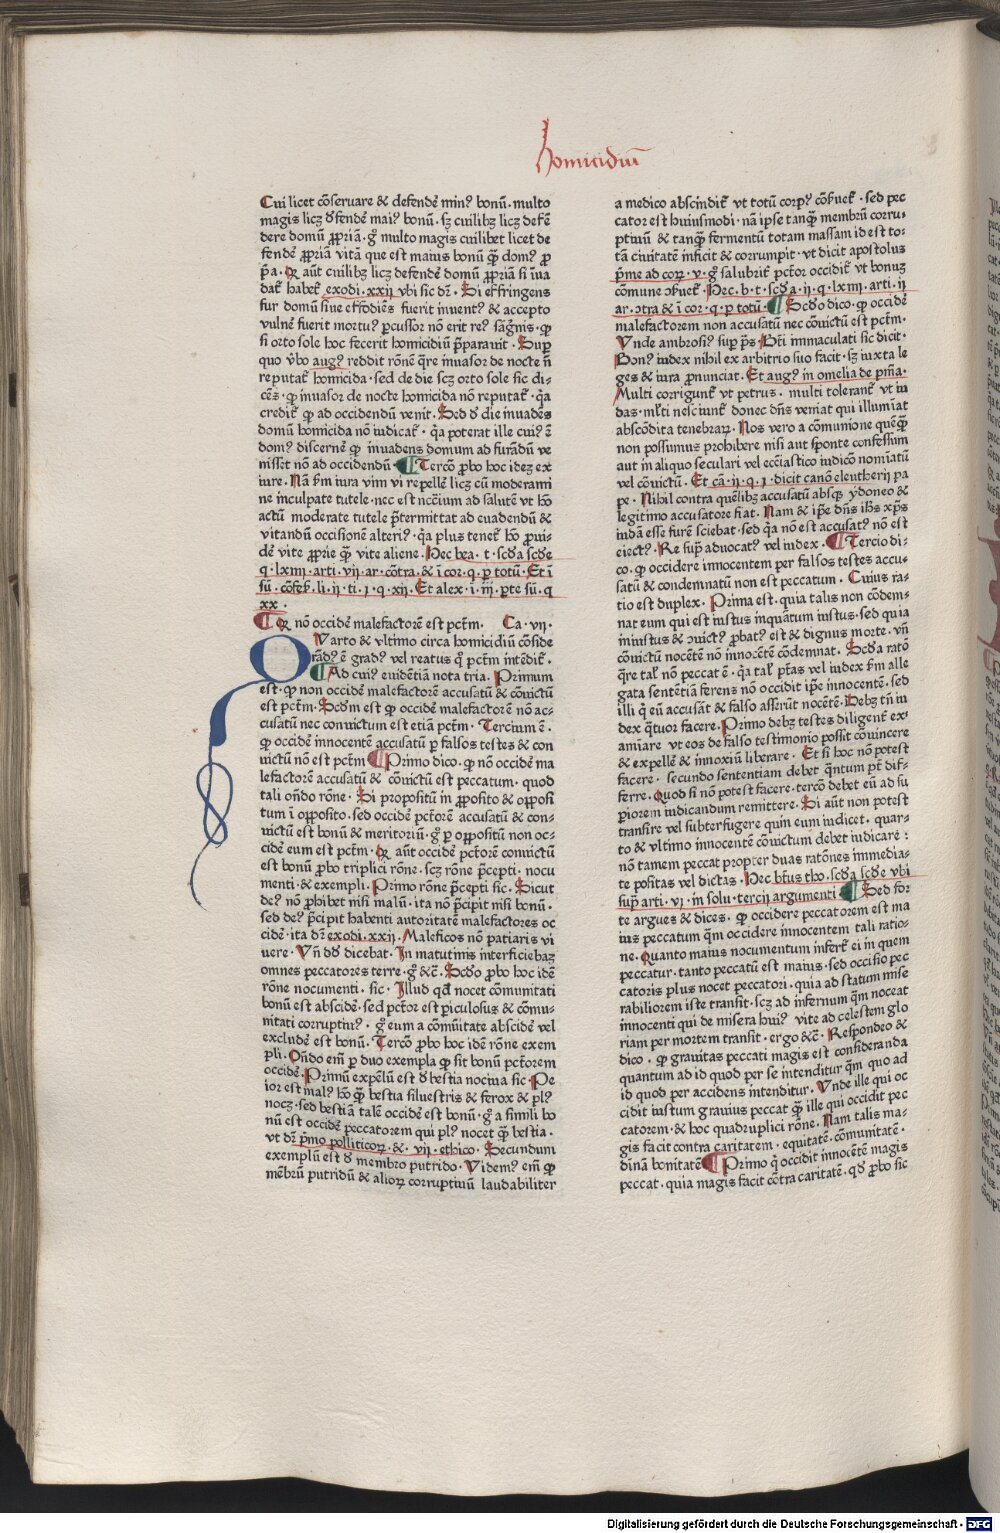 homicidiū
Cui licet cōseruare & defendē minꝰ bonū. multo
magis licꝫ dfendē maiꝰ bonū. sꝫ cuilibꝫ licꝫ defē
dere domū ꝓpriā. gͦ multo magis cuilibet licet de
fendē ꝓpriā vitā que est maius bonū qͣꝫ domꝰ ꝓ
pͥa. Qꝛ aūt cuilibꝫ licꝫ defendē domū ꝓpriā si īua
datᷣ habetᷣ exodi. xxij vbi sic dꝛ. Si effringens
fur domū siue effodiēs fuerit inuentꝰ & accepto
vulnē fuerit mortuꝰ ꝑcussor nō erit reꝰ sāgnīs. ꝙ
si orto sole hoc fecerit homicidiū ꝑpetrauit. Sup
quo vꝰbo augꝰ reddit rōnē qͣre inuasor de nocte n̄
reputatᷣ homicida. sed de die scꝫ orto sole sic di-
cēs. ꝙ inuasor de nocte homicida nō reputatᷣ. qͣa
creditᷣ ꝙ ad occidendū venit. Sed d die inuadēs
domū homicida nō iudicatᷣ. qͣa poterat ille cuiꝰ ē
domꝰ discernē ꝙ inuadens domum ad furādū ve
nisset nō ad occidendū. Tercō ꝓbo hoc idēꝫ ex
iure. Nā ẜm iura vim vi repellē licꝫ cū moderami
ne inculpate tutele. nec est ncc̄ium ad salutē vt hō
actū moderate tutele p̄termittat ad euadendū &
vitandū occisionē alteriꝰ. qͣa plus tenetᷣ hō ꝓui-
dē vite ꝓprie qͣꝫ vite aliene. Hec bea. t. scd̄a scd̄e
q. lxiiij. arti. vij ar. cōtra. & ī cor. q. ꝑ totū. Et ī
sū. cōfesẜ. li. ij. ti. j. q. xij. Et alex. ī. iij. ꝑte sū. q
xx.
Qꝛ nō occidē malefactorē est pctm̄. Ca. vij.
Quarto & vltimo circa homicidiū cōside
rādꝰ ē gradꝰ vel reatus qͥ pctm̄ intēditᷣ.
Ad cuiꝰ euidētiā nota tria. Primum
est. ꝙ non occidē malefactorē accusatū & cōuictū
est pctm̄. Scd̄m est ꝙ occidē malefactorē nō ac-
cusatū nec conuictum est etiā pctm̄. Tercium ē.
ꝙ occidē innocentē accusatū ꝑ falsos testes & con
uictū nō est pctm̄ Primo dico. ꝙ nō occidē ma
lefactorē accusatū & cōuictū est peccatum. quod
tali ōndo rōne. Si propositū in ꝓposito & oppōsi
tum ī opposito. sed occidē pctōrē accusatū & con-
uictū est bonū & meritoriū. gͦ ꝑ oppositū non oc-
cidē eum est pctm̄. Qꝛ aūt occidē pctōrē conuictū
est bonū ꝓbo triplici rōne. scꝫ rōne p̄cepti. nocu
menti. & exempli. Primo rōne p̄cepti sic. Sicut
deꝰ nō ꝓhibet nisi malū. ita nō p̄cipit nisi bonū.
sed deꝰ p̄cipit habenti autoritatē malefactores oc
cidē. ita dꝛ exodi. xxij. Maleficos nō patiaris vi
uere. Vn̄ dd dicebat. In matutinis interficiebaꝫ
omnes peccatores terre. gͦ &c̄. Scd̄o ꝓbo hoc idē
rōne nocumenti. sic. Illud qd nocet cōmunitati
bonū est abscidē. sed pctōr est ꝑiculosus & cōmu-
nitati corruptiuꝰ. gͦ eum a cōmūitate abscidē vel
excludē est bonū. Tercō ꝓbo hoc idē rōne exem
pli. Ōndo em̄ ꝑ duo exempla ꝙ sit bonū pctōrem
occidē. Primū exp̄lū est d bestia nociua sic. Pe
ior est malꝰ hō qͣꝫ bestia siluestris & ferox & plꝰ
nocꝫ. sed bestiā talē occidē est bonū. gͦ a simili bo
nū est occidē peccatorem qui plꝰ nocet qͣꝫ bestia.
vt dꝛ pͥmo polliticoꝝ. & . vij. ethico. Secundum
exemplū est d membro putrido. Videmꝰ em̄ ꝙ
mēbrū putridū & alioꝝ corruptiuū laudabiliter
a medico abscinditᷣ vt totū corpꝰ cōẜuetᷣ. sed pec
cator est huiusmodi. nā ipse tanqͣꝫ membrū corru-
ptiuū & tanqͣꝫ fermentū totam massam id est to-
tā ciuitatē inficit & corrumpit. vt dicit apostolus
pͥme ad coꝝ. v. gͦ salubritᷣ pctōr occiditᷣ vt bonuꝫ
cōmune ↄẜuetᷣ. Hec. b. t. scd̄a. ij. q. lxiiij. arti. ij
ar. ↄtra & ī cor. q. ꝑ totū. Scd̄o dico. ꝙ occidē
malefactorem non accusatū nec cōuictū est pctm̄.
Vnde ambrosiꝰ sup ps̄. Bt̄i immaculati sic dicit.
Bonꝰ iudex nihil ex arbitrio suo facit. sꝫ iuxta le
ges & iura ꝓnunciat. Et augꝰ in omelia de pn̄ia.
Multi corrigunt᷑ vt petrus. multi tolerantᷣ vt iu
das. ml̄ti nesciuntᷣ donec dn̄s veniat qui illumīat
abscōdita tenebraꝝ. Nos vero a cōmunione quēqͣꝫ
non possumus prohibere nisi aut sponte confessum
aut in aliquo seculari vel ecc̄iastico iudicō nomīatū
vel cōuictū. Et cā. ij. q. j. dicit canō eleutherij pa
pe. Nihil contra quēlibꝫ accusatū absqꝫ ydoneo &
legitimo accusatore fiat. Nam & ip̄e dn̄s ih̄s xp̄s
iudā esse furē sciebat. sed qͣa nō est accusatꝰ nō est
eiectꝰ. Re suꝑ aduocatꝰ vel iudex. Tercio di-
co. ꝙ occidere innocentem per falsos testes accu-
satū & condemnatū non est peccatum. Cuius ra-
tio est duplex. Prima est. quia talis non cōdem-
nat eum qui est iustus inquātum iustus. sed quia
iniustus & ↄuictꝰ ꝓbatꝰ est & dignus morte. vn̄
cōuictū nocētē nō innocētē cōdemnat. Scd̄a ratō
qͣre talꝭ nō peccat ē. qͣa talꝭ pt̄as vel iudex ẜm alle
gata sentētiā ferens nō occidit ip̄e innocentē. sed
illi qͥ eū accusātᷣ & falso asserūt nocētē. Debꝫ tn̄ iu
dex qͣtuor facere. Primo debꝫ testes diligentᷣ ex
amīare vt eos de falso testimonio possit cōuincere
& expellē & innoxiū liberare. Et si hoc nō potest
facere. secundo sententiam debet qͣntum pt̄ dif-
ferre. Quod si nō potest facere. tercō debet eū ad su
ꝑiorem iudicandum remittere. Si aūt non potest
transire vel subterfugere quin eum iudicet. quar-
to & vltimo innocentē cōuictum debet iudicare:
nō tamem peccat propter duas ratōnes immedia-
te positas vel dictas. Hec bt̄us tho. scd̄a scd̄e vbi
suꝑ arti. vj. in solu. tercij argumenti Sed for
te argues & dices. ꝙ occidere peccatorem est ma
ius peccatum qͣm occidere innocentem tali ratio-
ne. Quanto maius nocumentum infertᷣ ei in quem
peccatur. tanto peccatū est maius. sed occisio pec
catoris plus nocet peccatori. quia ad statum mise
rabiliorem iste transit. scꝫ ad infernum qͣm noceat
innocenti qui de misera huiꝰ vite ad celestem glo
riam per mortem transit. ergo &c̄. Respondeo &
dico. ꝙ grauitas peccati magis est consideranda
quantum ad id quod per se intenditur qͣm quo ad
id quod per accidens intenditur. Vnde ille qui oc
cidit iustum grauius peccat qͣꝫ ille qui occidit pec
catorem. & hoc quadruplici rōne. Nam talis ma-
gis facit contra caritatem. equitatē. cōmunitatē.
diuinā bonitatē Primo qͥ occidit innocētē magis
peccat. quia magis facit cōtra caritatē. qd ꝓbo sic
Digitalisierung gefördert durch die Deutsche Forschungsgemeinschaft - DFG